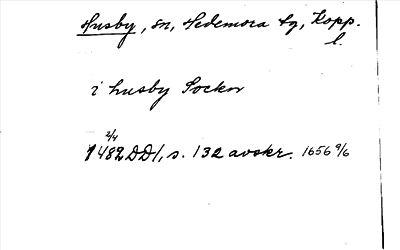 Husby, sn, Hedemora tg, Kopp.
l.
i husby Socken
2/4
1482 DD1, s. 132 avskr. 1656 9/6